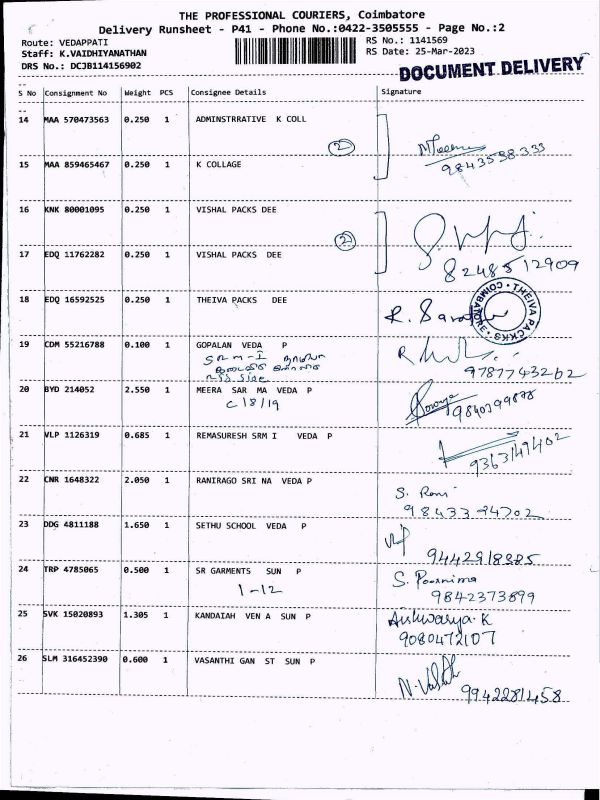 THE PROFESSIONAL COURIERS, Coimbatore
Delivery Runsheet - P41 - Phone No.:0422-3505555 - Page No.:2
Route: VEDAPPATI
RS No.: 1141569
Staff: K.VAIDHIYANATHAN
RS Date: 25-Mar-2023
DRS No.: DCJB114156902
DOCUMENT DELIVERY
S No Consignment No Weight PCS Consignee Details Signature
14 MAA 570473563 0.250 1 ADMINSTRRATIVE K COLL
2
15 MAA 859465467 0.250 1 K COLLAGE
16 KNK 80001095 0.250 1 VISHAL PACKS DEE
2
17 EDQ 11762282 0.250 1 VISHAL PACKS DEE
82485 12909
18 EDQ 16592525 0.250 1 THEIVA PACKS DEE
THEIVA PACKKS COIMBATORE
19 CDM 55216788 0.100 1 GOPALAN VEDA P
SRM-I
9787743262
20 BYD 214052 2.550 1 MEERA SAR MA VEDA P
C/8/19
21 VLP 1126319 0.685 1 REMASURESH SRM I VEDA P
9363147402
22 CNR 1648322 2.050 1 RANIRAGO SRI NA VEDA P
S. Rani
98433 94702
23 DDG 4811188 1.650 1 SETHU SCHOOL VEDA P
24 TRP 4785065 0.500 1 SR GARMENTS SUN P
1-12
S. Poornima
9842373899
25 SVK 15020893 1.305 1 KANDAIAH VEN A SUN P
Aishwarya.K
9080472107
26 SLM 316452390 0.600 1 VASANTHI GAN ST SUN P
9942281458